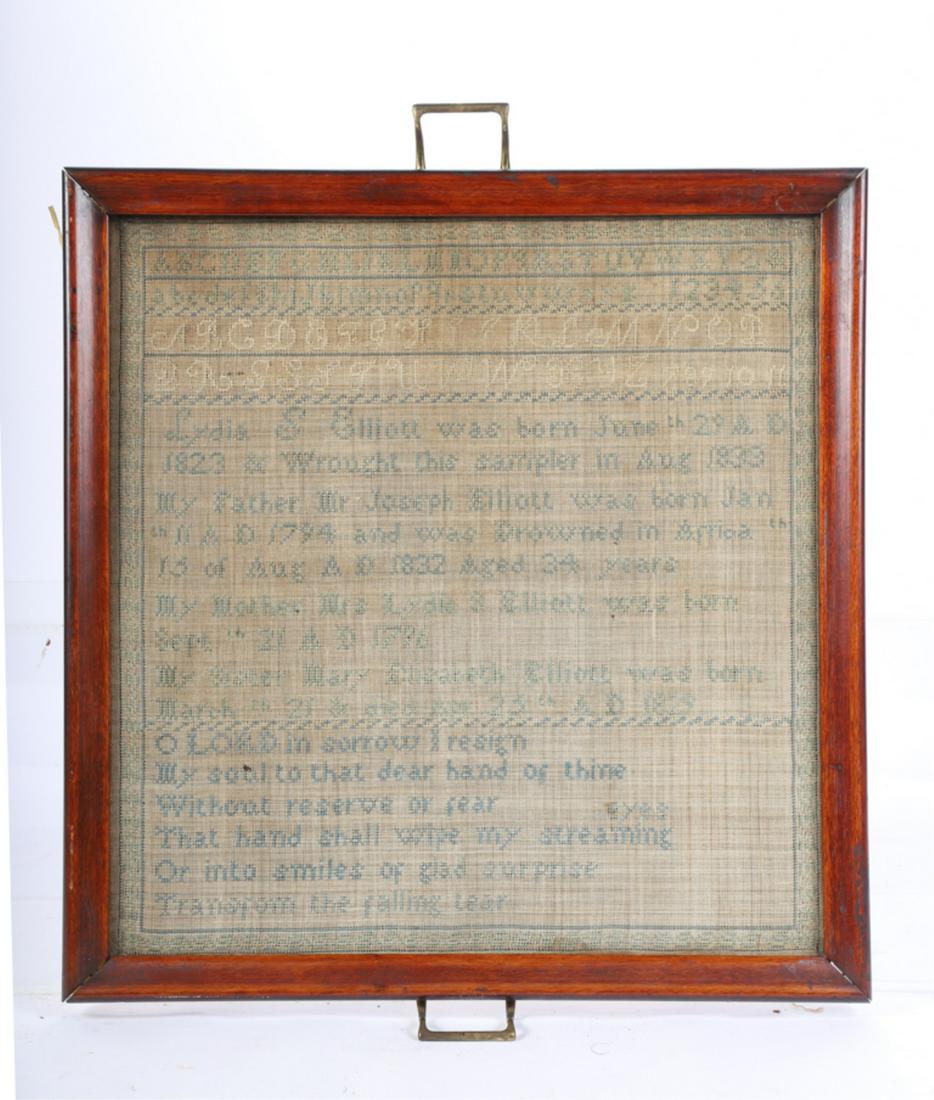 ABCDEFGHIJKLMNOPQRSTUVWXYZ&
1234
Lydia S Elliott was born June th 29 A D
1823 & Wrought this sampler in Aug 1833
My Father Mr Joseph Elliott was born Jan
th 11 A D 1794 and was Drowned in Africa th
15 of Aug A D 1832 Aged 34 years
My Mother Mrs Lydia S Elliott was born
Sept th 21 A D 1796
My Sister Mary Elizabeth Elliott was born
March th 21 & died Apr 25 th A D
O LORD in sorrow I resign
My soul to that dear hand of thine
Without reserve or fear
eyes
That hand shall wipe my streaming
Or into smiles of glad surprise
Transfom the falling tear